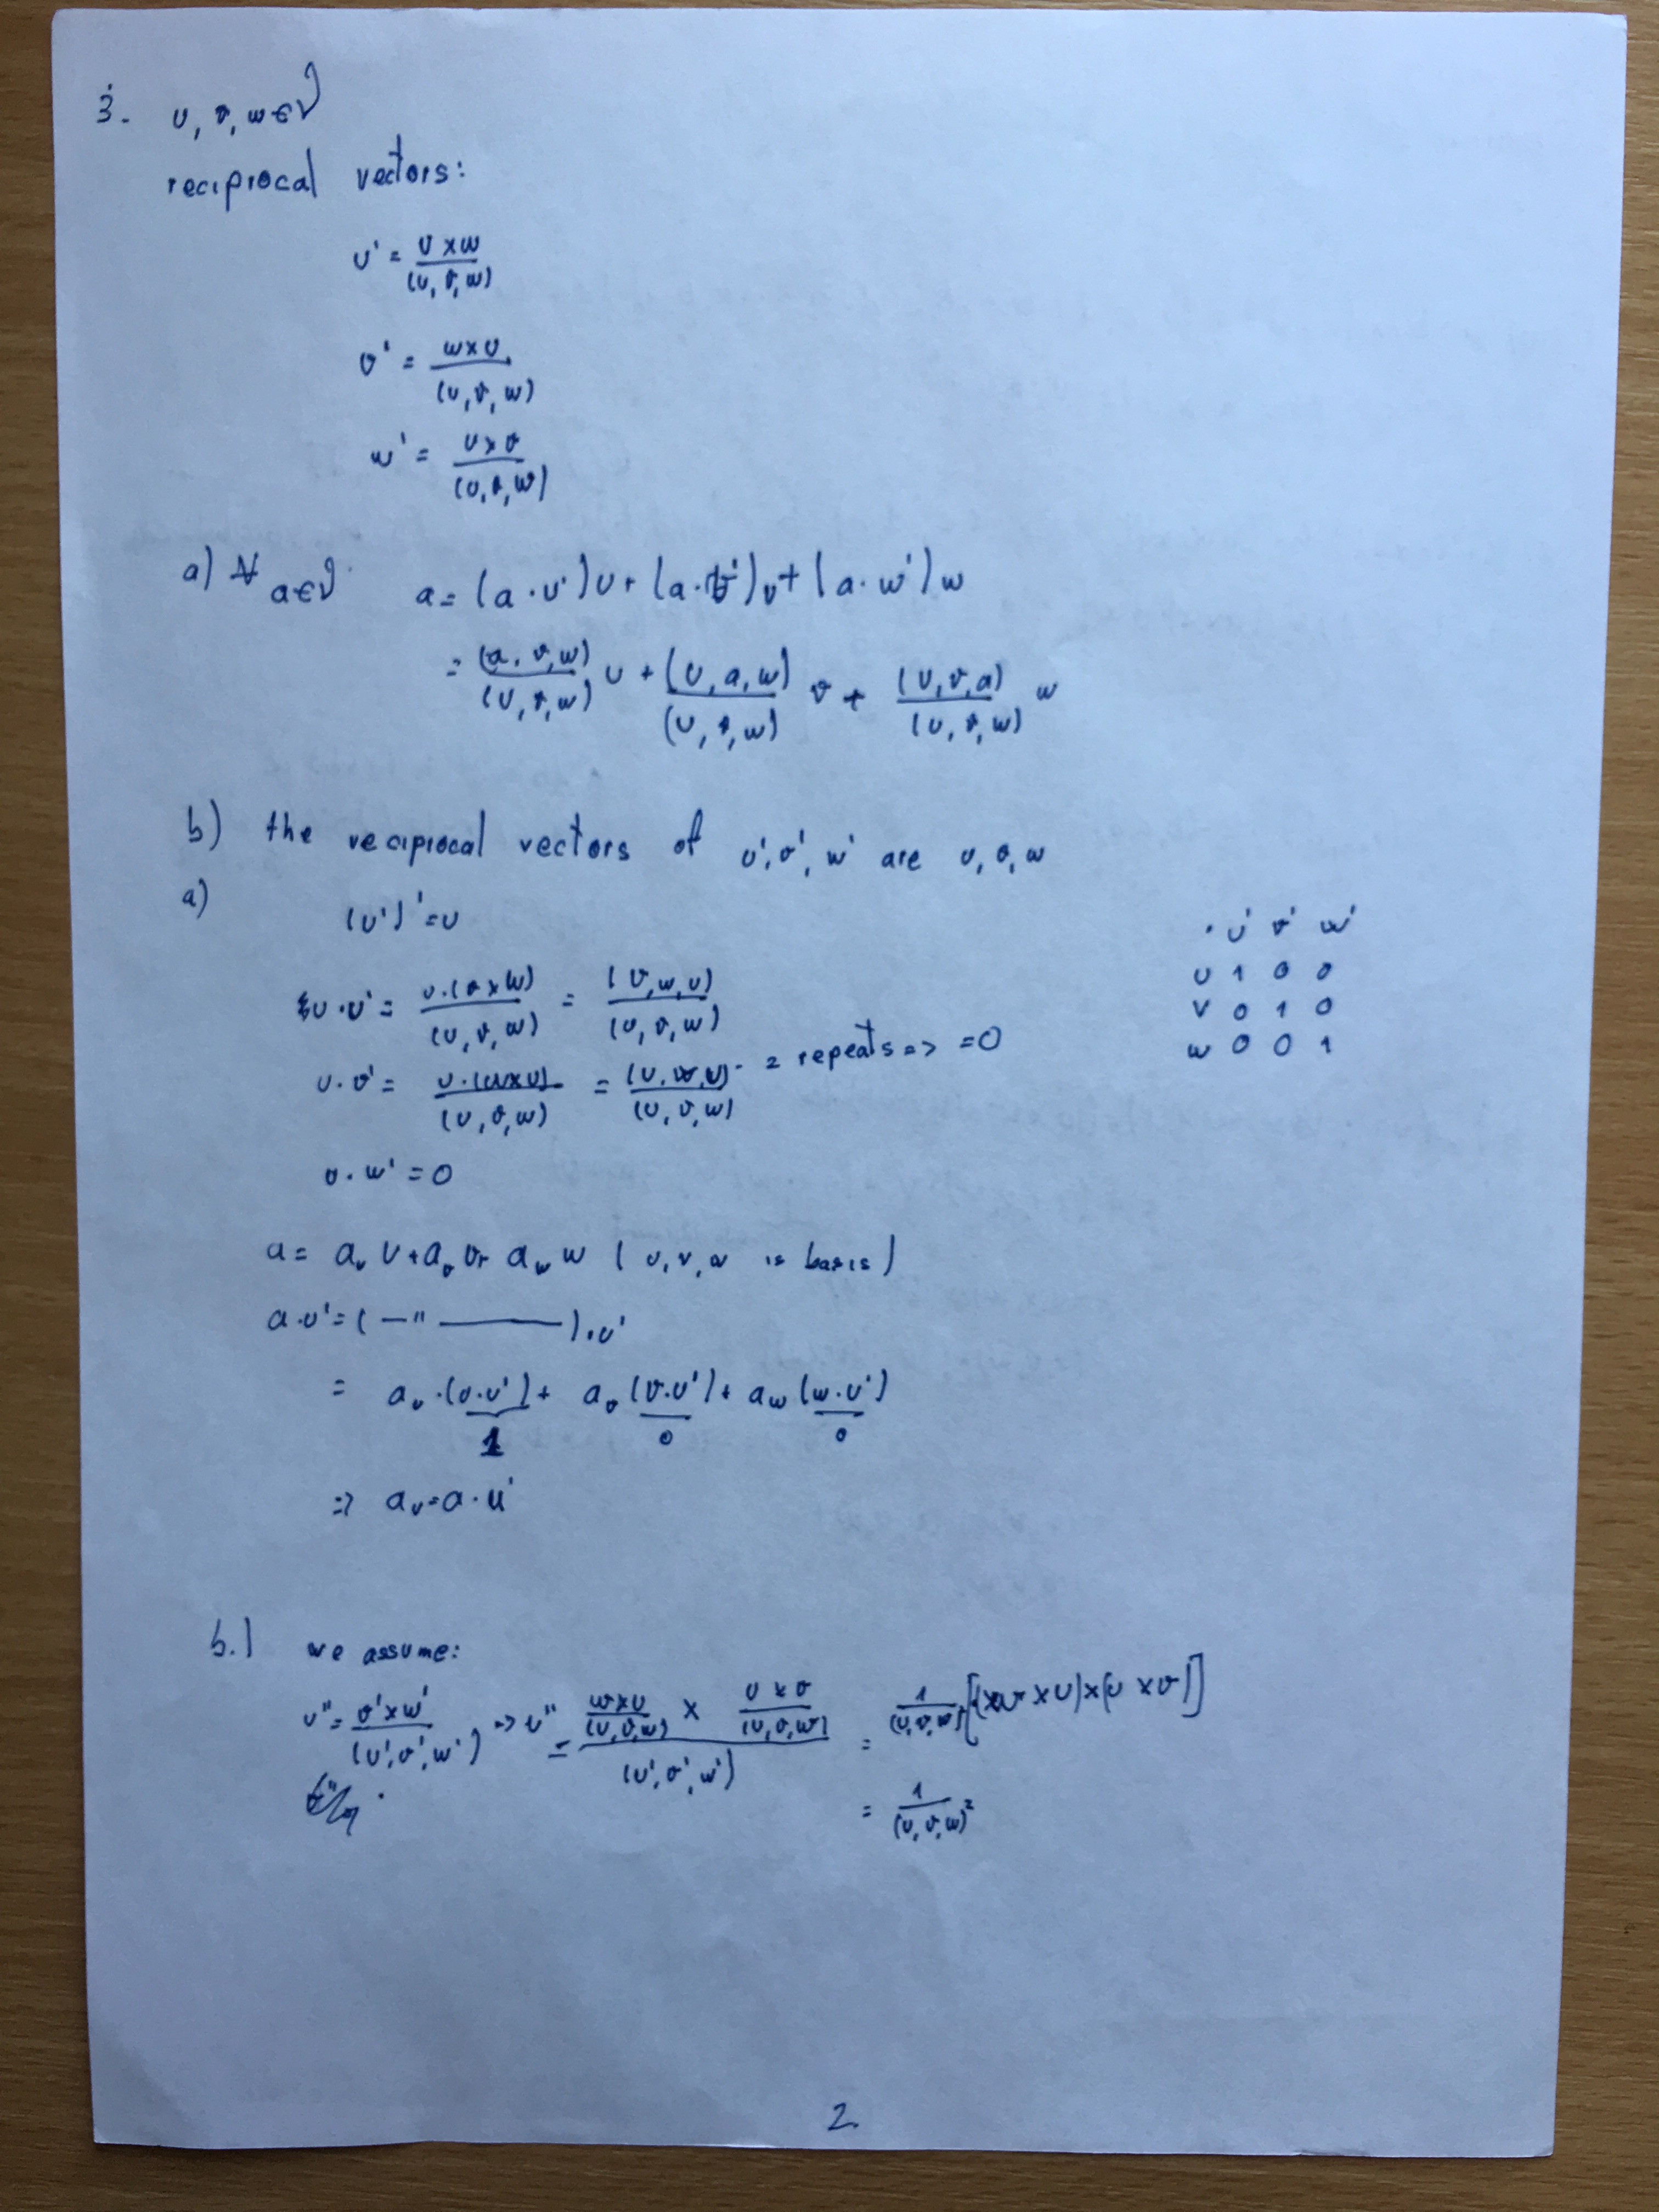 3. u, v, w ∈ V
reciprocal vectors:
u' = v × w / (u, v, w)
v' = w × u / (u, v, w)
w' = u × v / (u, v, w)
a) ∀ a∈V a = (a · u')u + (a · v')v + (a · w')w
= (a, v, w)/(u, v, w) u + (u, a, w)/(u, v, w) v + (u, v, a)/(u, v, w) w
b) the reciprocal vectors of u', v', w' are u, v, w
a) (u')' = u
· u' v' w'
u 1 0 0
v 0 1 0
w 0 0 1
u · u' = u · (v × w)/(u, v, w) = (v, w, u)/(u, v, w)
u · v' = u · (w × u)/(u, v, w) = (u, w, u)/(u, v, w) = repeats => = 0
u · w' = 0
a = a_u u + a_v v + a_w w ( u, v, w is basis)
a · u' = ( —"———— ) · u'
= a_u · (u · u') + a_v (v · u') + a_w (w · u')
1 0 0
=> a_u = a · u'
b.) we assume:
u'' = v' × w' / (u', v', w') => u'' = w × u/(u, v, w) × u × v/(u, v, w) / (u', v', w') = 1/(u, v, w)² [(w × u) × (u × v)]
= 1/(u, v, w)²
2